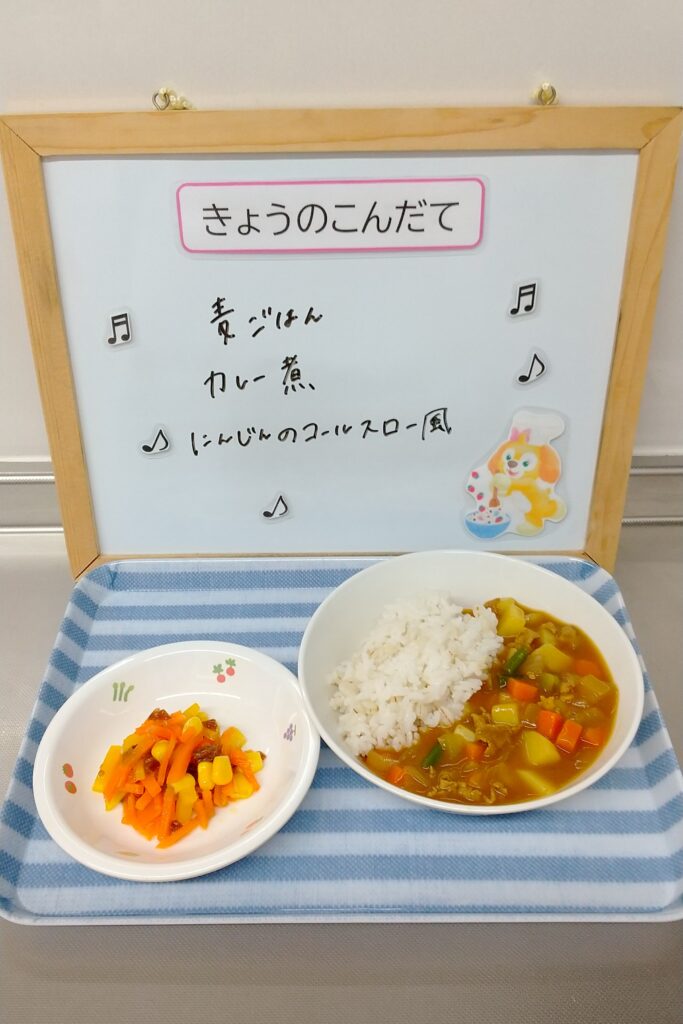 きょうのこんだて
麦ごはん
カレー煮
にんじんのコールスロー風